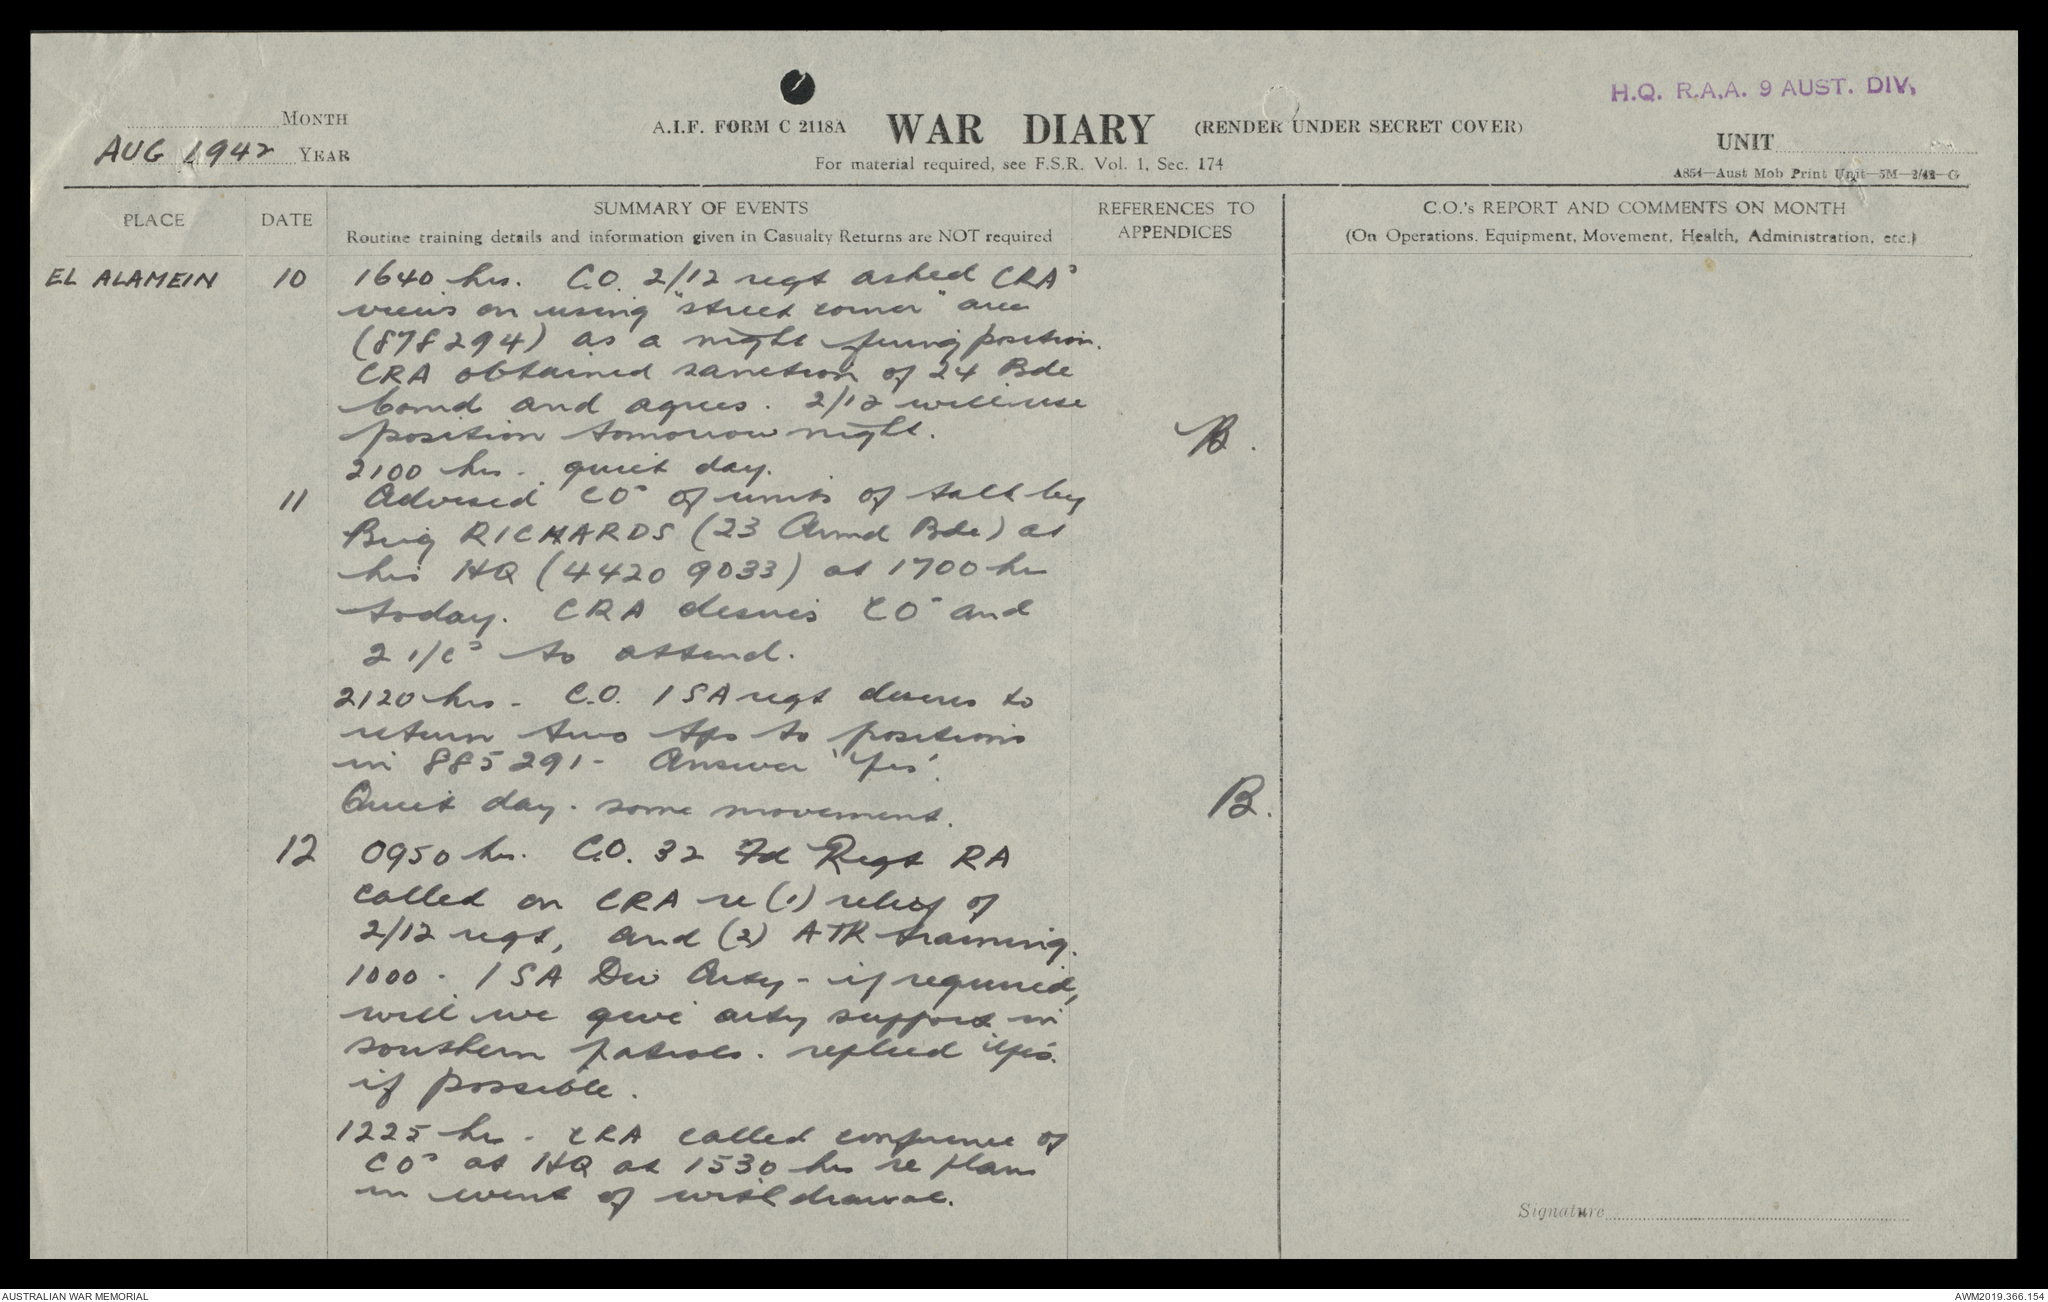 H.Q. R.A.A. 9 AUST. DIV.
MONTH
AUG 1942 YEAR
A.I.F. FORM C 2118A WAR DIARY (RENDER UNDER SECRET COVER)
For material required, see F.S.R. Vol. 1, Sec. 174
UNIT
A854—Aust Mob Print Unit—5M—2/42—G
PLACE
DATE
SUMMARY OF EVENTS
Routine training details and information given in Casualty Returns are NOT required
REFERENCES TO
APPENDICES
C.O.'s REPORT AND COMMENTS ON MONTH
(On Operations, Equipment, Movement, Health, Administration, etc.)
EL ALAMEIN 10 1640 hrs. C.O. 2/12 regt asked CRAs
views on using "street corner" area
(878294) as a night firing position.
CRA obtained sanction of 24 Bde
Comd and agrees. 2/12 will use
position tomorrow night.
B.
2100 hrs. quiet day.
11 Advised COs of units of talk by
Brig RICHARDS (23 Armd Bde) at
his HQ (4420 9033) at 1700 hrs
today. CRA desires COs and
2 i/cs to attend.
2120 hrs - C.O. 1 SA regt desires to
return two tps to positions
in 885291 - Answer 'Yes'.
Quiet day - some movement.
B.
12 0950 hrs. C.O. 32 Fd Regt RA
called on CRA re (1) relief of
2/12 regt, and (2) ATK training.
1000 - 1 SA Div Arty - if required,
will we give arty support in
southern patrols. replied 'Yes'
if possible.
1225 hrs - CRA called conference of
COs at HQ at 1530 hrs re plans
in event of withdrawal.
Signature
AUSTRALIAN WAR MEMORIAL
AWM2019.366.154